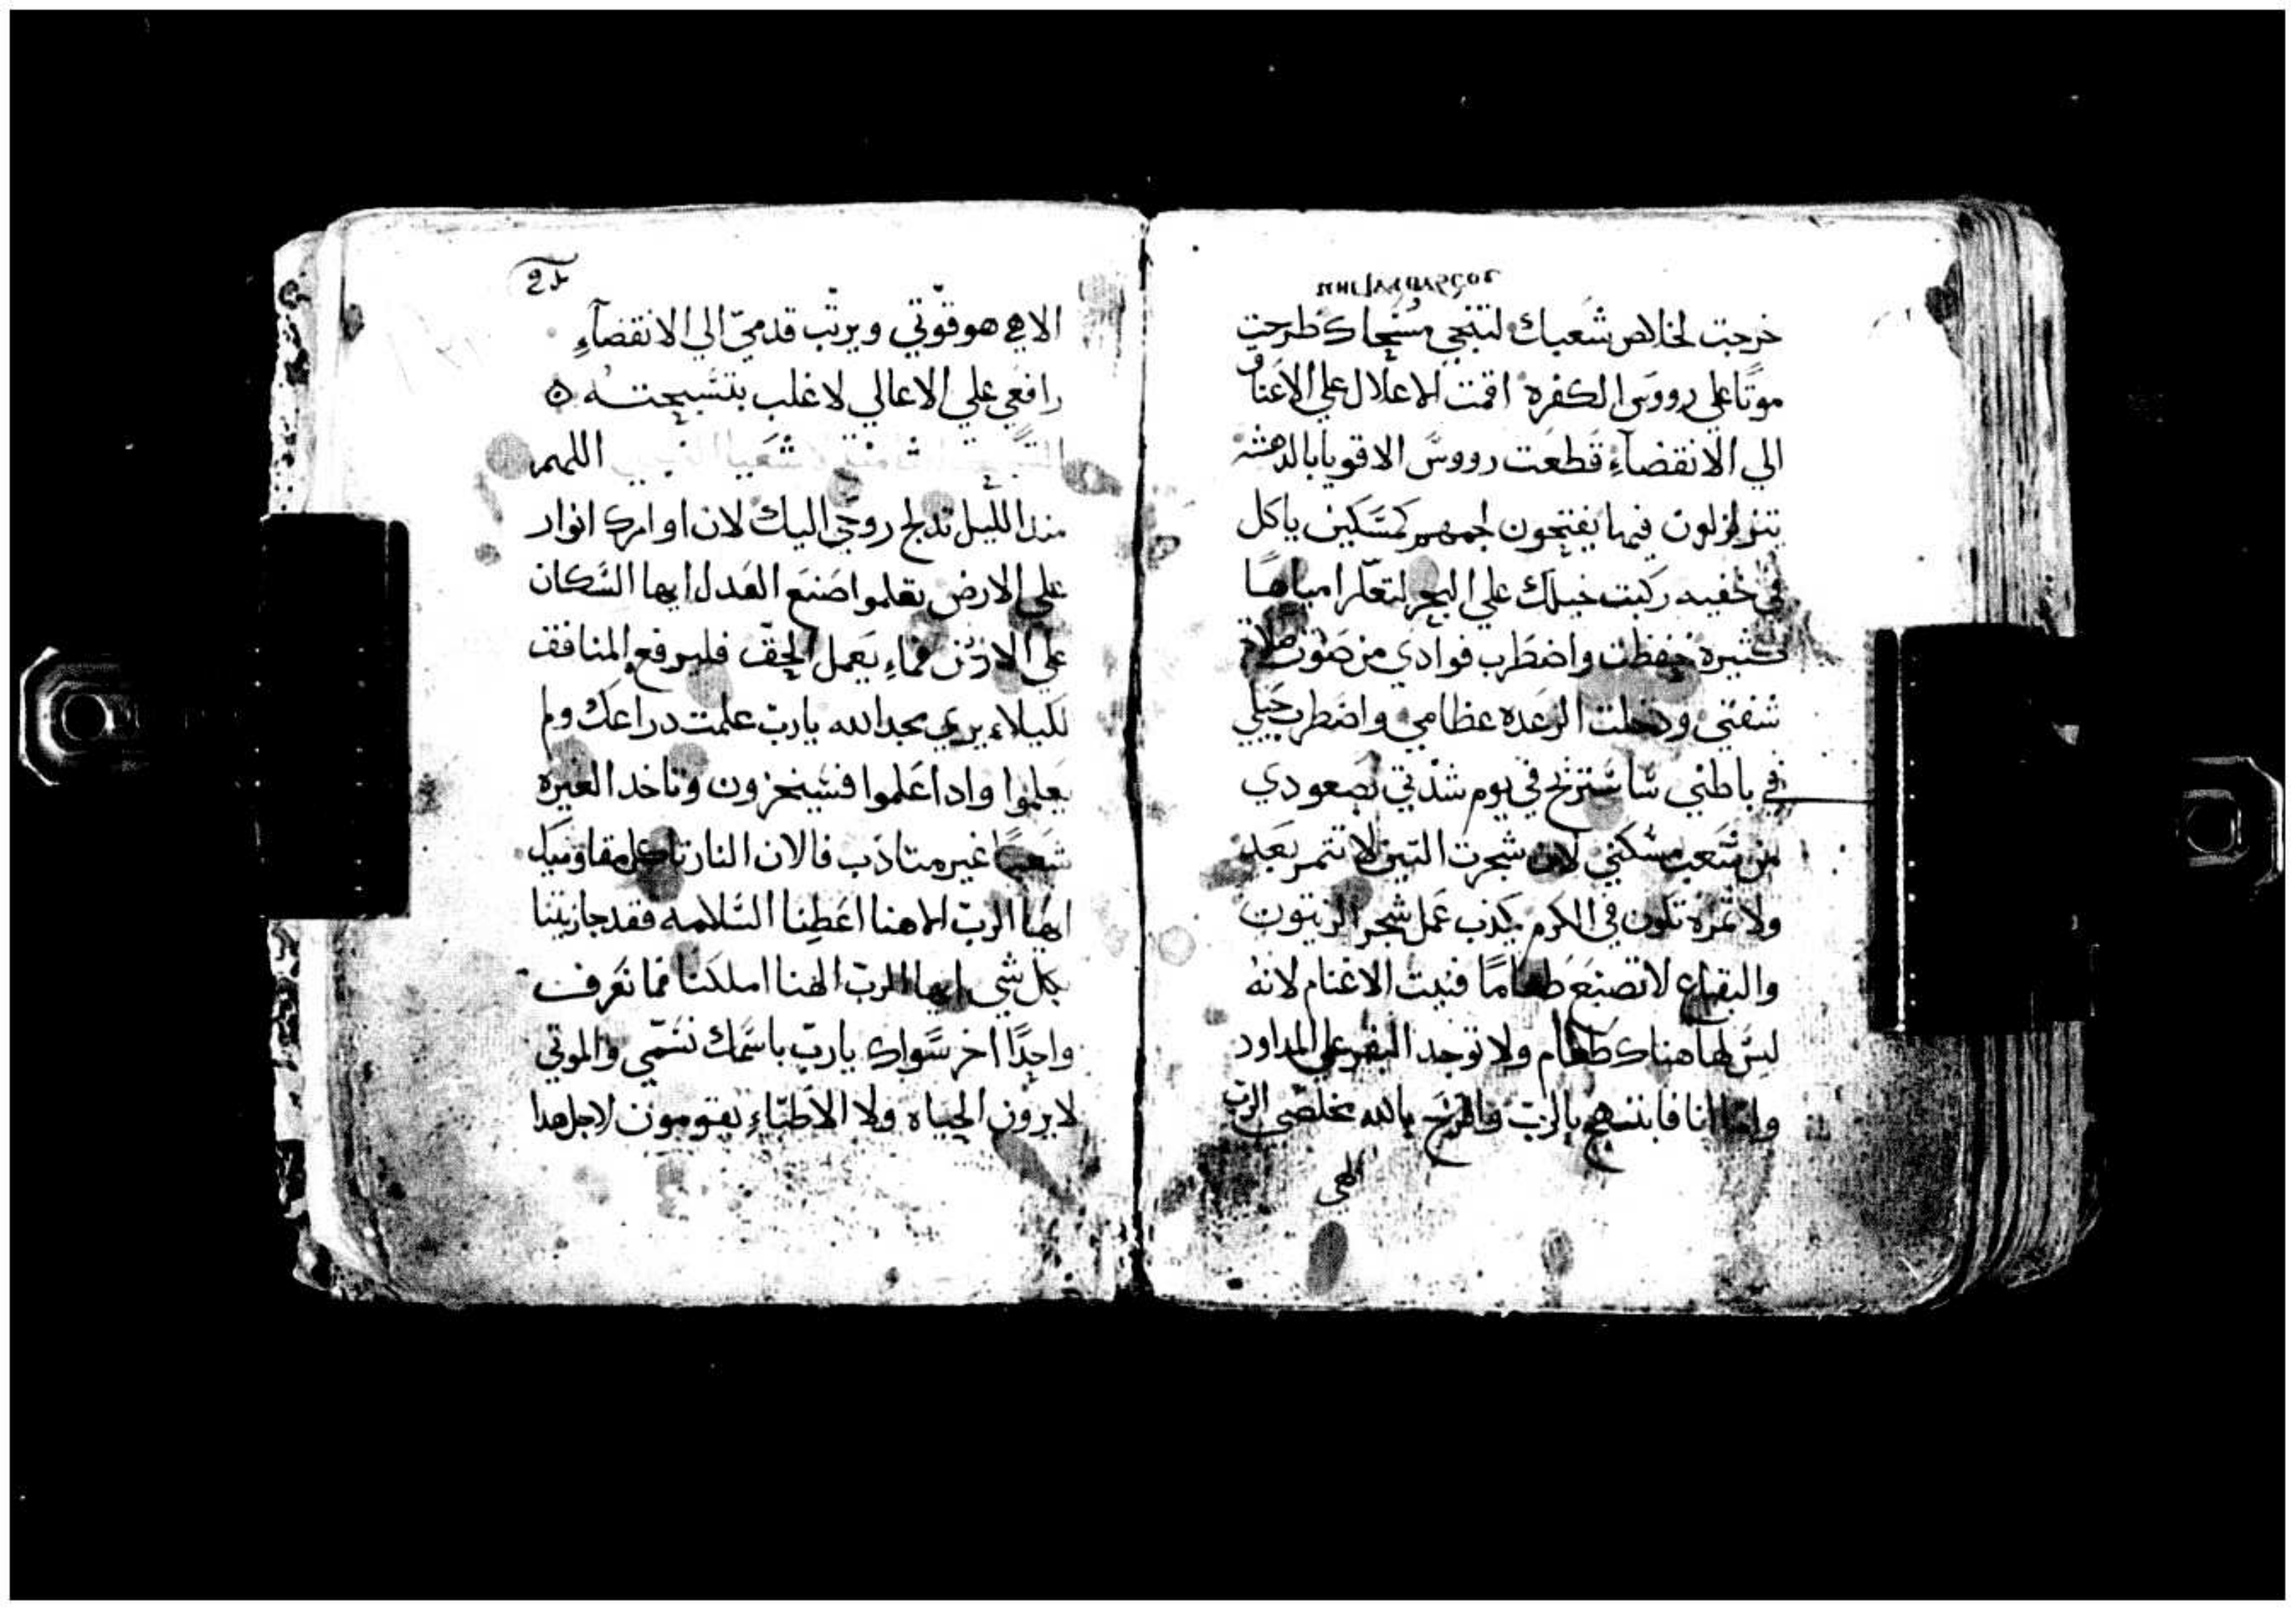 خرجت لخلاص شعبك لتنجي مسحاك طرحت
موتًا علي رووس الكفره اقمت الاغلال علي الاعناق
الي الانقضآءِ قطعت رووس الاقويا بالدهشه
يتزلزلون فيها يفتحون لجمهم كمسكين ياكل
في خفيه ركبت خيلك علي البحر لتعكرا مياها
كثيرة حفظت واضطرب فوادي من صوت صلاة
شفتي ودخلت الرعده عظامي واضطرب حيلي
في باطني ساستريح في يوم شدتي بصعودي
من شعب مسكني لان شجرت التين لا تثمر بعد
ولا ثمره تكون في الكرم يكذب عمل شجر الزيتون
والبقاع لا تصنع طعامًا فنيت الاغنام لانه
ليس لها هناك طعام ولا توجد البقر علي المداود
واما انا فابتهج بالربّ وافرح بالله مخلصي الربّ
الهي
الاهي هو قوّتي ويرتّب قدميّ الي الانقضآءِ
رافعي علي الاعالي لاغلب بتسبحته
اللهم
منذ الليل تدلج روحي اليك لان اوامرك انوار
علي الارض تعلموا صنع العدل ايها السكان
علي الارض فماءِ يعمل الحقّ فليرفع المنافق
لكيلا يري مجد الله ياربّ علمت دراعك ولم
يعلموا وادا علموا فسيخزون وتاخد الغيرة
شعبًا غير متادّب فالان النار تاكل مقاوميك
ايها الربّ الاهنا اعطِنا السّلامه فقد جازيتنا
بكل شي ايها الربّ الهنا املكنا فما نعرف
واحدًا اخر سواك ياربّ باسمك نسمّي والموتي
لا يرون الحياه ولا الاطبّاءِ يقومون لاجل هدا